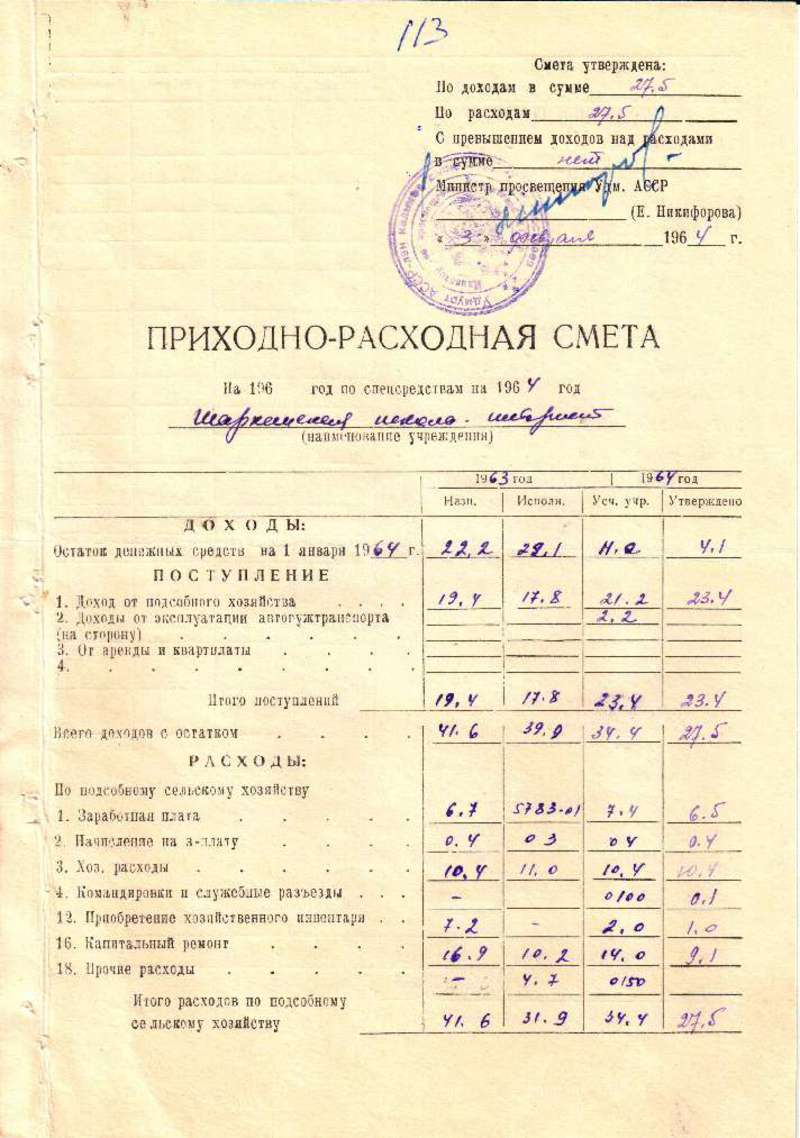 113
Смета утверждена:
По доходам в сумме 27.5
По расходам 27.5
С превышением доходов над расходами
в сумме нет
Министр просвещения Удм. АССР
(Е. Никифорова)
« 3 » февраля 1964 г.
ПРИХОДНО-РАСХОДНАЯ СМЕТА
На 196 год по спецсредствам на 1964 год
Шарканская школа-интернат
(наименование учреждения)
1963 год 1964 год
Назн. Исполн. Усч. учр. Утверждено
ДОХОДЫ:
Остаток денежных средств на 1 января 1964 г. 22,2 22,1 н.с 4.1
ПОСТУПЛЕНИЕ
1. Доход от подсобного хозяйства . . . . 19,4 17.8 21.2 23.4
2. Доходы от эксплуатации автогужтранспорта 2.2
(на сторону) . . . . . .
3. От аренды и квартплаты . . . .
4. . . . . . . . .
Итого поступлений 19,4 17.8 23.4 23.4
Всего доходов с остатком . . . . 41.6 39.9 34.4 27.5
РАСХОДЫ:
По подсобному сельскому хозяйству
1. Заработная плата . . . . . 6.7 5783-01 7.4 6.5
2. Начисление на з-плату . . . . 0.4 03 04 0.4
3. Хоз. расходы . . . . . . 10,4 11.0 10,4 10.4
4. Командировки и служебные разъезды . . . – 0100 0.1
12. Приобретение хозяйственного инвентаря . . 7.2 - 2.0 1.0
16. Капитальный ремонт . . . . 16.9 10.2 14.0 9.1
18. Прочие расходы . . . . . – 4.7 0150
Итого расходов по подсобному
сельскому хозяйству 41.6 31.9 34.4 27.5